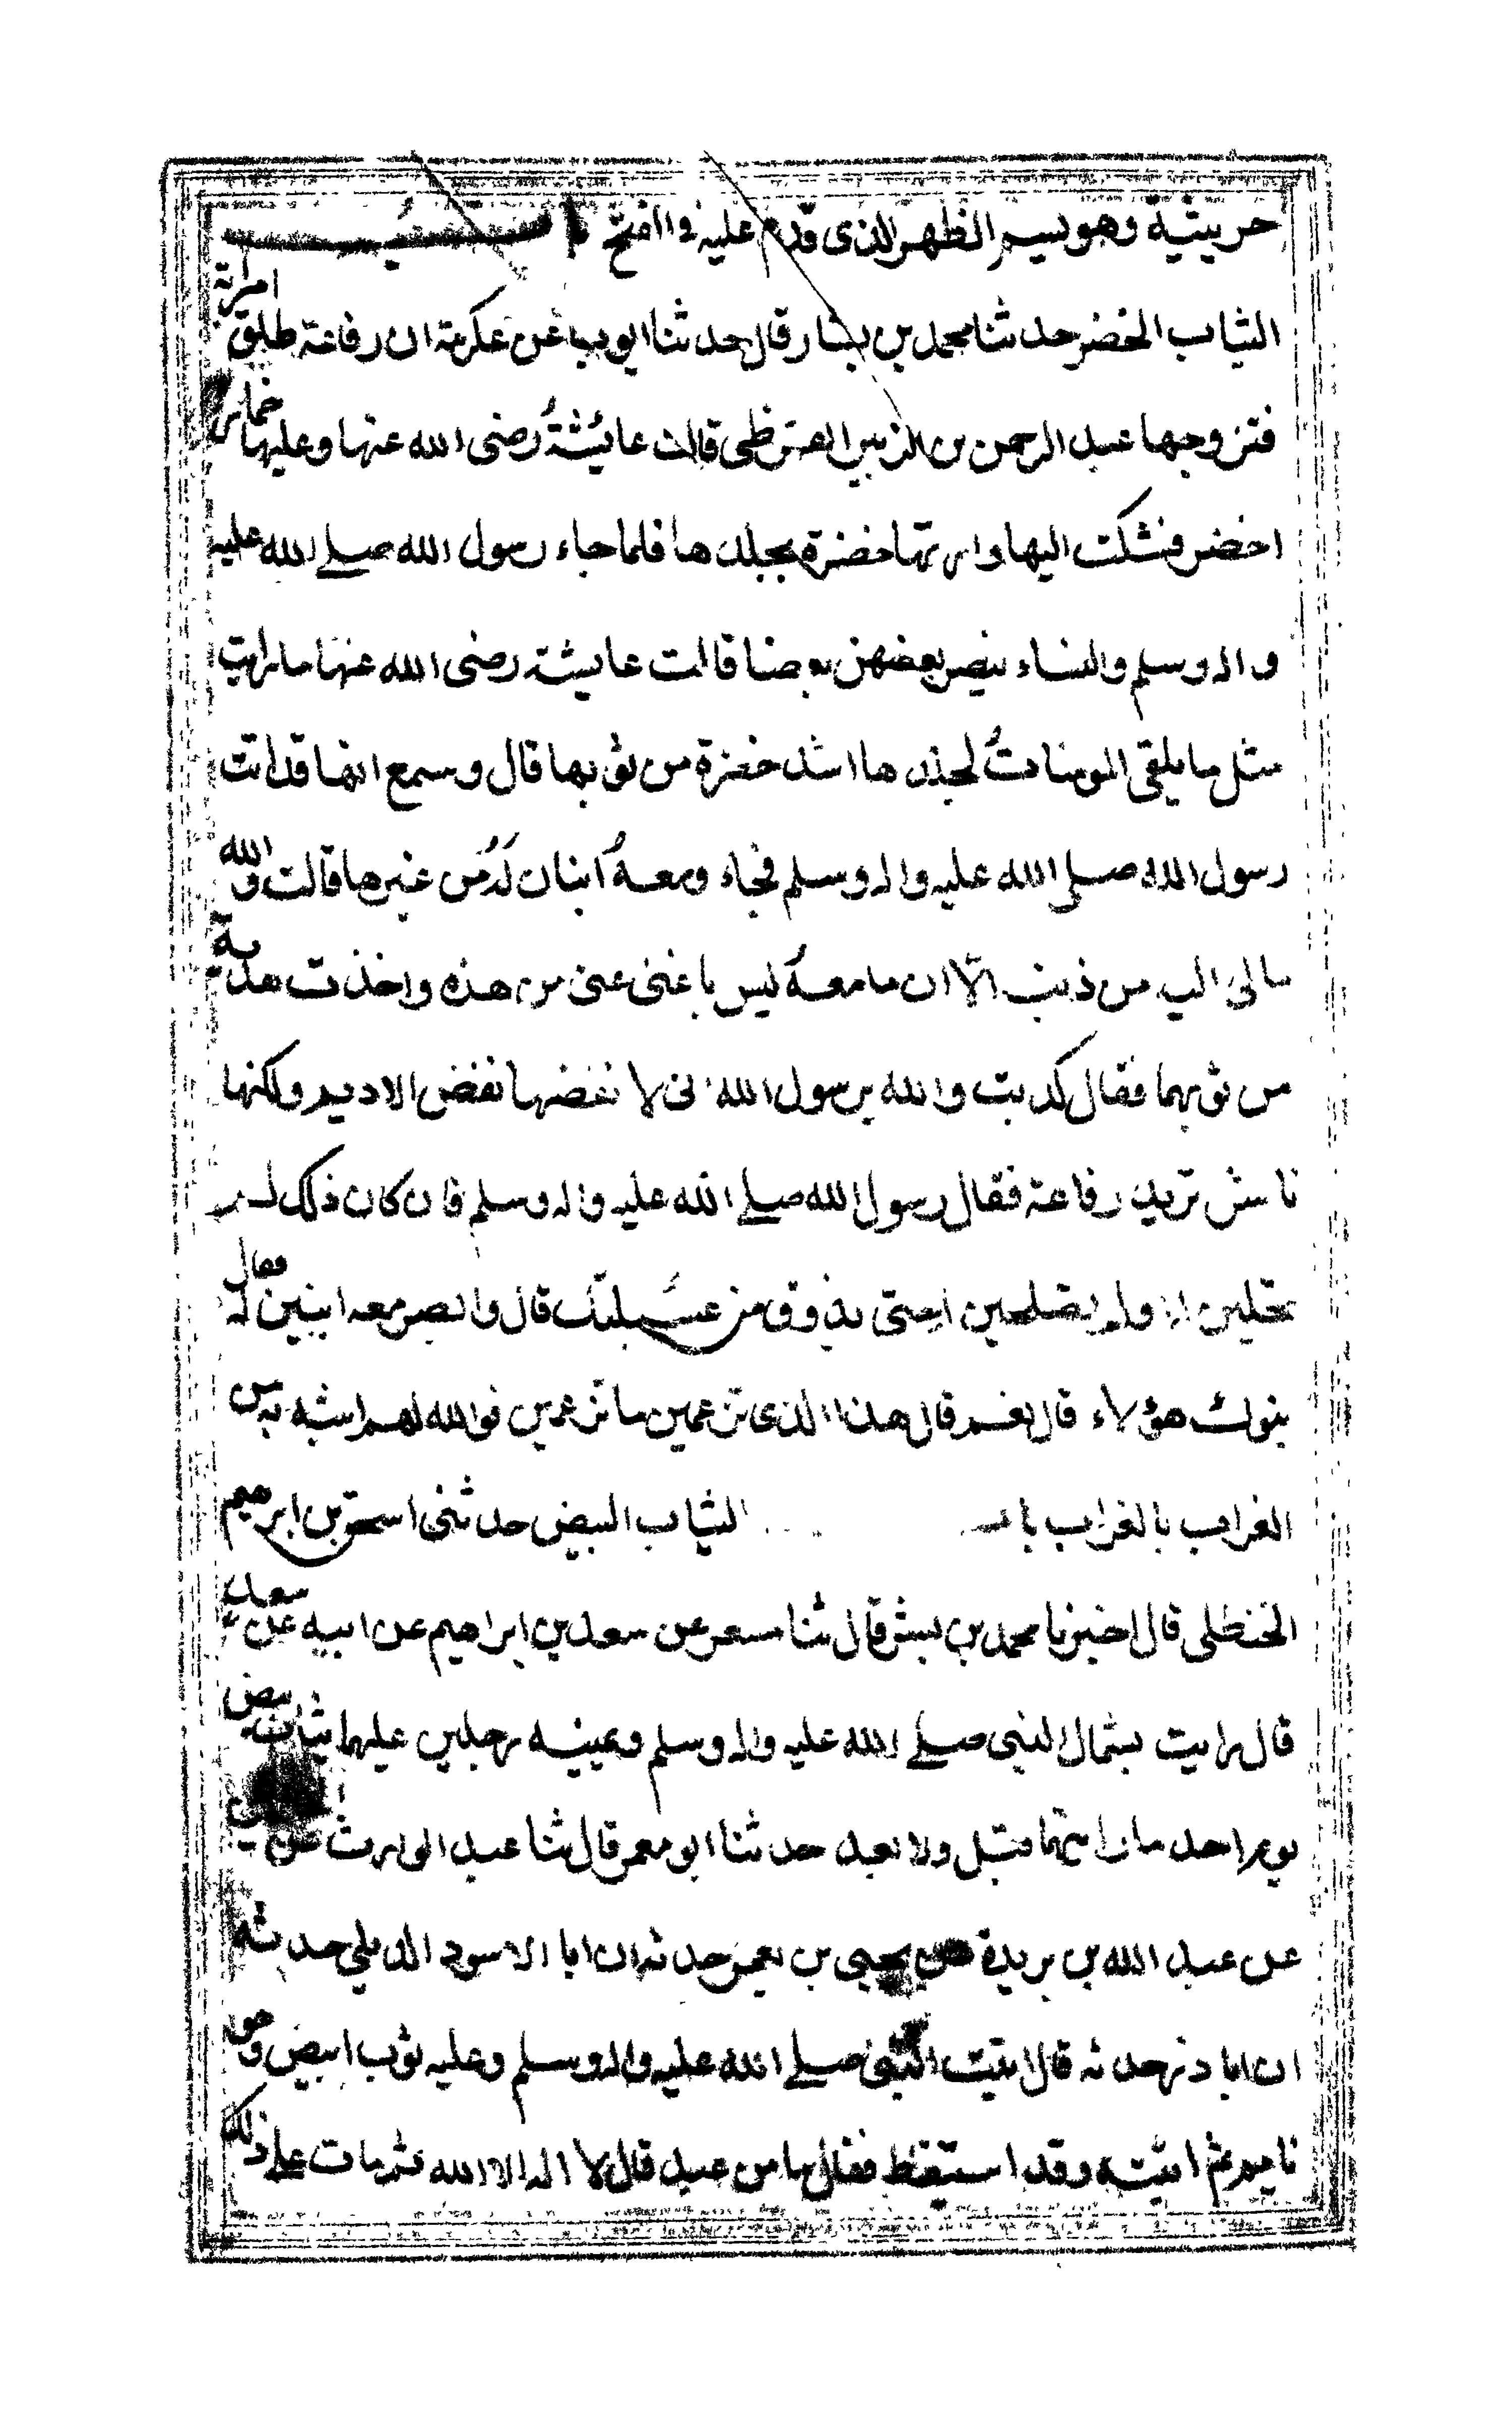 حريثية وهو يسم الظهر الذى قدم عليه فى الفتح با
الثياب الخضر حدثنا محمد بن بشار قال حدثنا ايوب عن عكرمة ان رفاعة طلق امراته
فتزوجها عبد الرحمن بن الزبير القرظى قالت عائشة رضى الله عنها وعليها خمار
اخضر فشكت اليها وارتها خضرة بجلدها فلما جاء رسول الله صلے الله عليه
واله وسلم والنساء ينصر بعضهن بعضا قالت عايشة رضى الله عنها ما رايت
مثل ما يلقى المومنات لجلدها اشد خضرة من ثوبها قال وسمع انها قد اتت
رسول الله صلى الله عليه واله وسلم فجاء ومعه ابنان له من غيرها قالت والله
مالى اليه من ذنب الا ان ما معه ليس باغنى عنى من هذه واخذت هدبة
من ثوبهما فقال كذبت والله يرسول الله انى لا نفضها نفض الاديم ولكنها
ناشز تريد رفاعة فقال رسول الله صلے الله عليه واله وسلم فان كان ذلك لم
تحلين له ولم تصلحين له حتى يذوق من عسيلتك قال وابصر معه ابنين له فقال
بنوك هؤلاء قال نعم قال هذا الذى تزعمين ما تزعمين فوالله لهم اشبه به من
الغراب بالغراب با الثياب البيض حدثنى اسحق بن ابرهيم
الحنظلى قال اخبرنا محمد بن بشر قال ثنا مسعر عن سعد بن ابراهيم عن ابيه عن سعد
قال رايت بشمال النبى صلے الله عليه واله وسلم ويمينه رجلين عليهما ثياب بيض
يوم احد ما رايتهما قبل ولا بعد حدثنا ابو معمر قال ثنا عبد الوارث عن
عن عبد الله بن بريدة عن يحيى بن يعمر حدثه ان ابا الاسود الديلي حدثه
ان ابا ذر حدثه قال اتيت النبى صلے الله عليه واله وسلم وعليه ثوب ابيض وهو
نايم ثم اتيته وقد استيقظ فقال ما من عبد قال لا اله الا الله ثم مات على ذلك